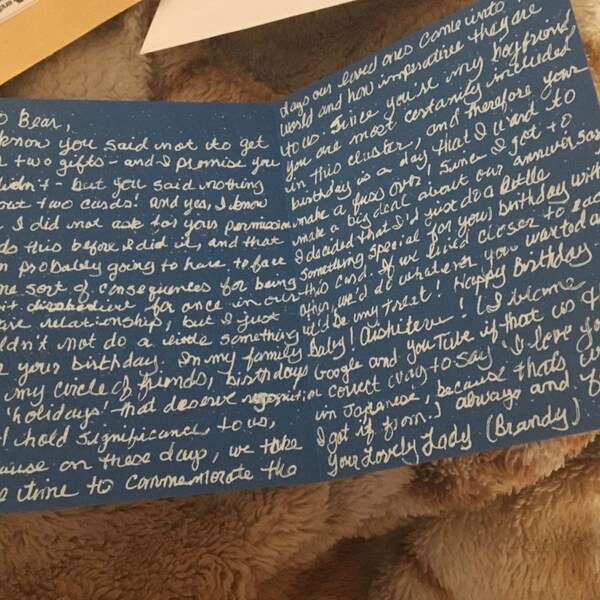 o Bear,
know you said not to get
two gifts - and I promise you
didn't - but you said nothing
out two cards! And yes, I know
I did not ask for your permission
do this before I did it, and that
m probably going to have to face
me sort of consequences for being
bit disobedient for once in our
tire relationship, but I just
uldn't not do a little something
r your birthday. In my family
my circle of friends, birthdays
'holidays' that deserve recognition
d hold significance to us,
ause on these days, we take
e time to commemorate the
days our loved ones came into
world and how imperative they are
to us. Since you're my boyfriend,
you are most certainly included
in this cluster, and therefore your
birthday is a day that I want to
make a fuss over! Since I got to
make a big deal about our anniversary
I decided that I'd just do a little
something special for your birthday with
this card. If we lived closer to each
other, we'd do whatever you wanted and
it'd be my treat! Happy Birthday
Baby! Aishiteru! (I blame
Google and YouTube if that is
correct way to say 'I love you'
in Japanese, because that's
I got it from.) Always and
Your Lovely Lady (Brandy)